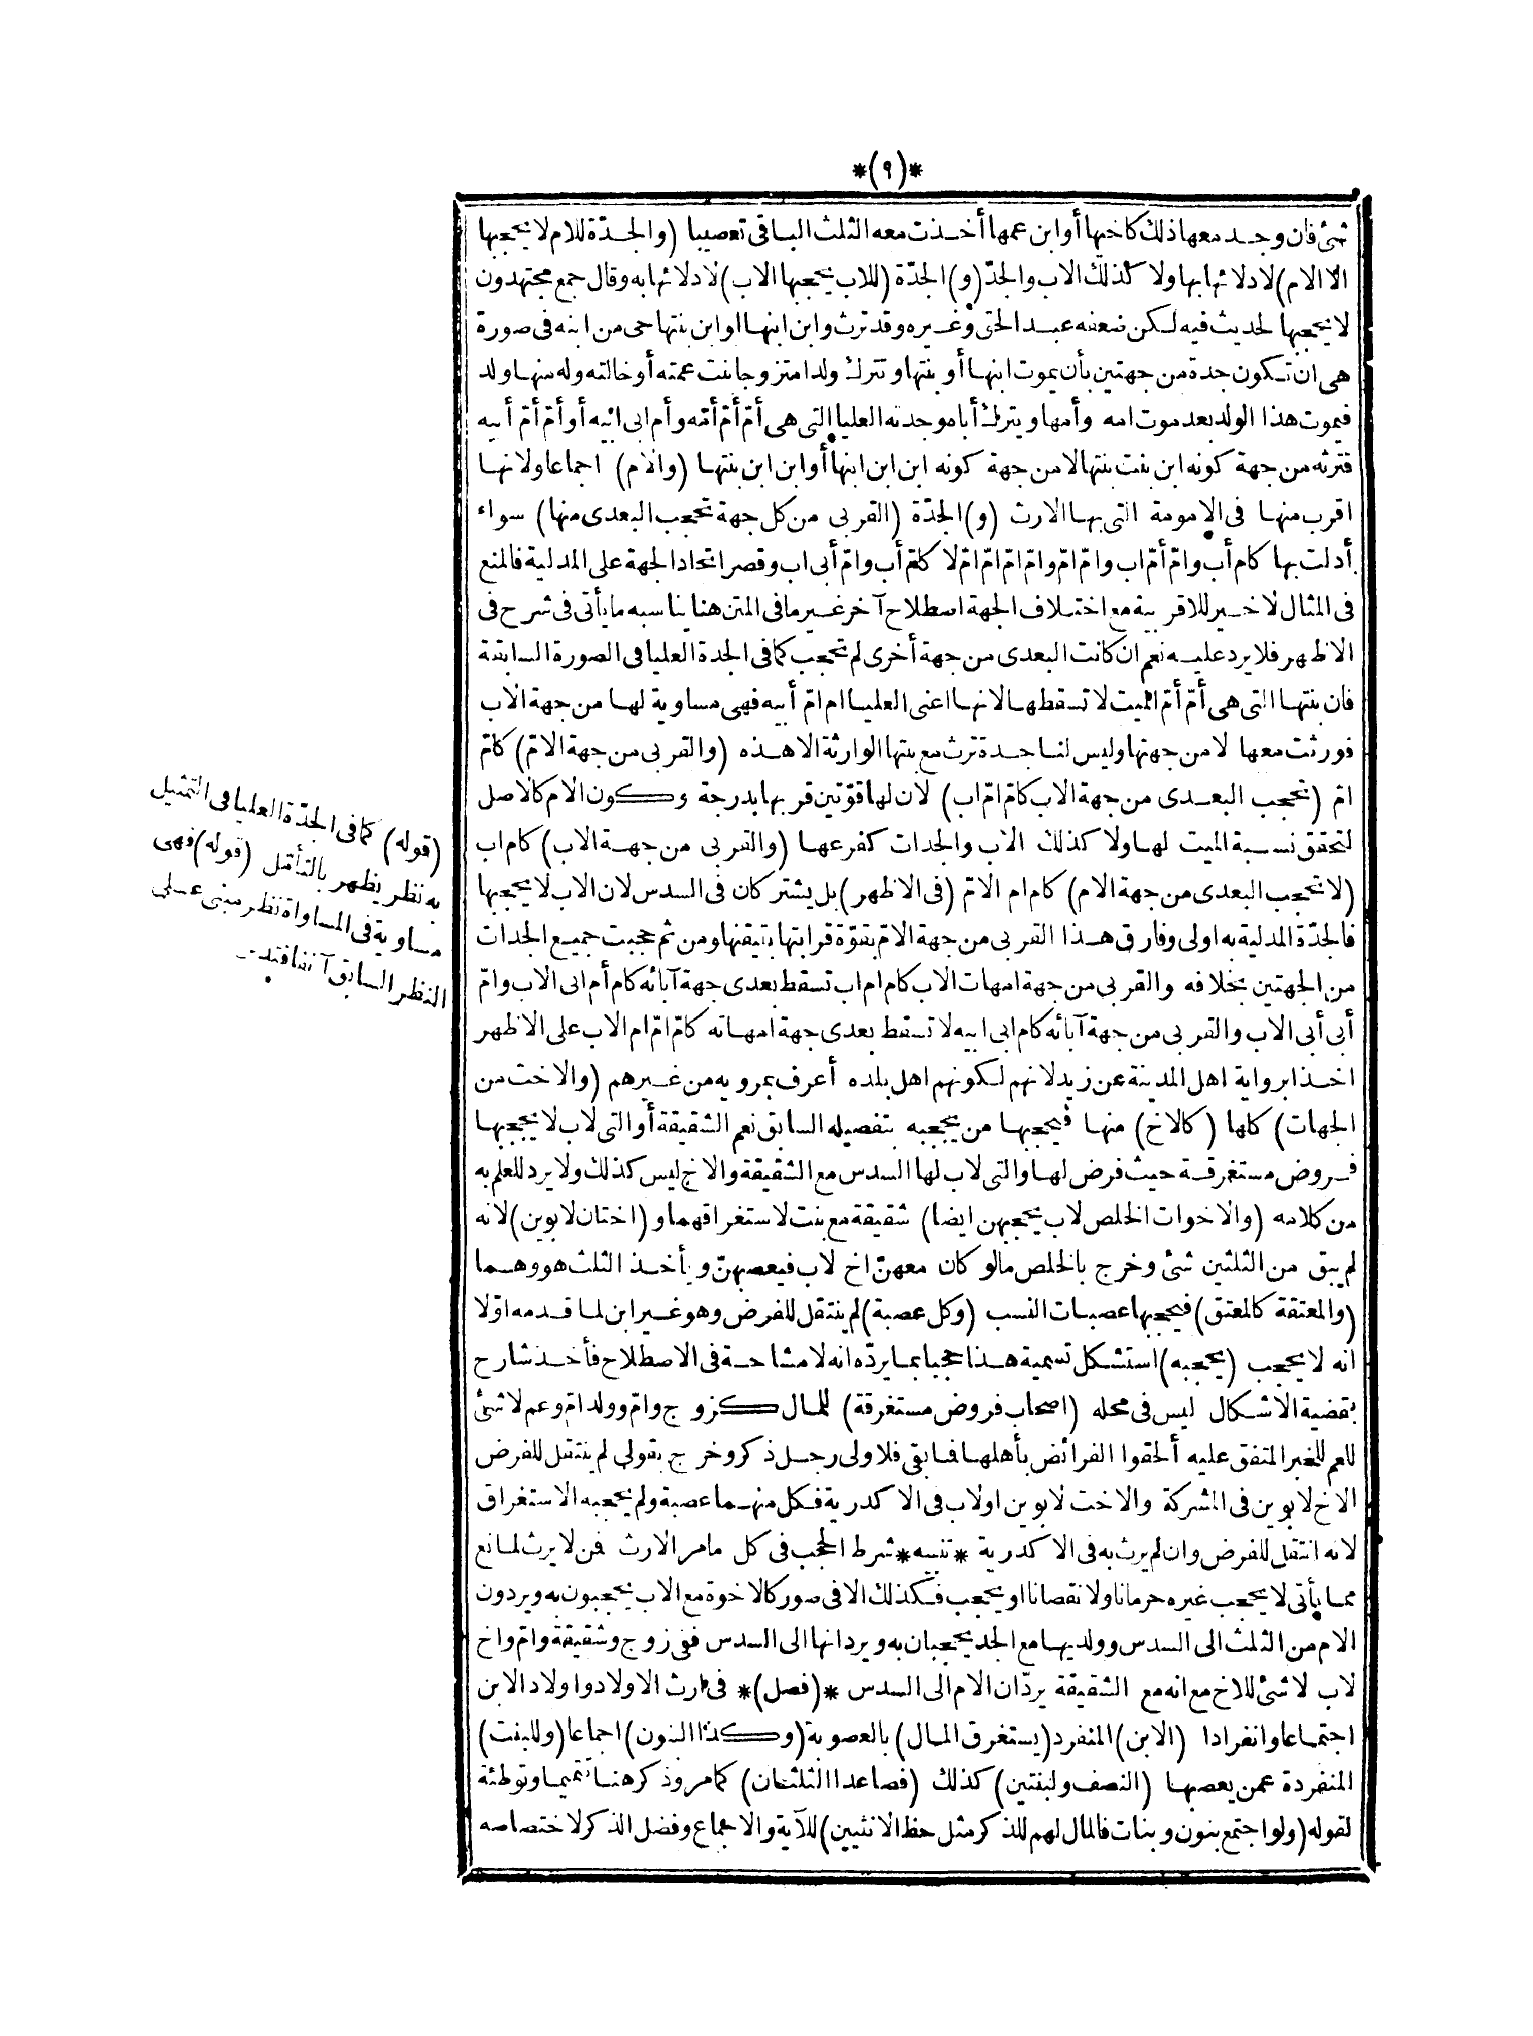 *(٩)*
شئ فان وجد معها ذلك كاخيها أو ابن عمها أخذت معه الثلث الباقى تعصيبا (والجدّة للام لا يحجبها
الا الام) لادلائها بها ولا كذلك الاب والجدّ (و) الجدّة (للاب يحجبها الاب) لادلائها به وقال جمع مجتهدون
لا يحجبها لحديث فيه لكن ضعفه عبد الحق وغيره وقد ترث وابن ابنها او ابن بنتها حى من ابنه فى صورة
هى ان تكون جدة من جهتين بأن يموت ابنها أو بنتها وتترك ولدا متزوجا بنت عمته أو خالته وله منها ولد
فيموت هذا الولد بعد موت امه وأمها ويترك أباه وجدته العليا التى هى أمّ أمّ أمّه وأم ابى ابيه أو أمّ أمّ أبيه
فترثه من جهة كونه ابن بنت بنتها لا من جهة كونه ابن ابن ابنها أو ابن ابن بنتها (والام) اجماعا ولانها
اقرب منها فى الامومة التى بها الارث (و) الجدّة (القربى من كل جهة تحجب البعدى منها) سواء
أدلت بها كام أب وامّ أمّ اب وامّ امّ وامّ امّ امّ ام لا كامّ أب وامّ أبى اب وقصر اتحاد الجهة على المدلية فالمنع
فى المثال لاخير للاقربية مع اختلاف الجهة اصطلاح آخر غير ما فى المتن هنا يناسبه ما يأتى فى شرح فى
الاظهر فلا يرد عليه نعم ان كانت البعدى من جهة أخرى لم تحجب كما فى الجدة العليا فى الصورة السابقة
فان بنتها التى هى أمّ أمّ الميت لا تسقطها لانها اعنى العليا ام امّ أبيه فهى مساوية لها من جهة الاب
فورثت معها لا من جهتها وليس لنا جدة ترث مع بنتها الوارثة الا هذه (والقربى من جهة الامّ) كامّ
امّ (تحجب البعدى من جهة الاب كامّ امّ اب) لان لها قوّتين قربها بدرجة وكون الام كالاصل
لتحقق نسبة الميت لها ولا كذلك الاب والجدات كفرعها (والقربى من جهة الاب) كام اب
(لا تحجب البعدى من جهة الام) كام ام الامّ (فى الاظهر) بل يشتركان فى السدس لان الاب لا يحجبها
فالجدّة المدلية به اولى وفارق هذا القربى من جهة الامّ بقوّة قرابتها بتيقنها ومن ثم حجبت جميع الجدات
من الجهتين بخلافه والقربى من جهة امهات الاب كام ام اب تسقط بعدى جهة آبائه كام أم ابى الاب وامّ
أبى أبى الاب والقربى من جهة آبائه كام ابى ابيه لا تسقط بعدى جهة امهاته كامّ امّ ام الاب على الاظهر
اخذا برواية اهل المدينة عن زيد لانهم لكونهم اهل بلده أعرف بمرويه من غيرهم (والاخت من
الجهات) كلها (كالاخ) منها فيحجبها من يحجبه بتفصيله السابق نعم الشقيقة أو التى لاب لا يحجبها
فروض مستغرقة حيث فرض لها والتى لاب لها السدس مع الشقيقة والاخ ليس كذلك ولا يرد للعلم به
من كلامه (والاخوات الخلص لاب يحجبهن ايضا) شقيقة مع بنت لاستغراقهما و(اختان لابوين) لانه
لم يبق من الثلثين شئ وخرج بالخلص مالو كان معهنّ اخ لاب فيعصبهنّ ويأخذ الثلث هو وهما
(والمعتقة كالمعتق) فيحجبها عصبات النسب (وكل عصبة) لم ينتقل للفرض وهو غير ابن لما قدمه اوّلا
انه لا يحجب (يحجبه) استشكل تسمية هذا حجبا بما يردّه انه لا مشاحة فى الاصطلاح فأخذ شارح
بقضية الاشكال ليس فى محله (اصحاب فروض مستغرقة) للمال كزوج وامّ وولد امّ وعم لا شئ
للعم للخبر المتفق عليه ألحقوا الفرائض بأهلها فما بقى فلاولى رجل ذكر وخرج بقولى لم ينتقل للفرض
الاخ لابوين فى المشركة والاخت لابوين اولاب فى الاكدرية فكل منهما عصبة ولم يحجبه الاستغراق
لانه انتقل للفرض وان لم يرث به فى الاكدرية *تنبيه* شرط الحجب فى كل مامر الارث فمن لا يرث لمانع
مما يأتى لا يحجب غيره حرمانا ولا نقصانا او يحجب فكذلك الا فى صور كالاخوة مع الاب يحجبون به ويردون
الام من الثلث الى السدس وولديها مع الجد يحجبان به ويردانها الى السدس ففى زوج وشقيقة وامّ واخ
لاب لا شئ للاخ مع انه مع الشقيقة يردّان الام الى السدس *(فصل)* فى ارث الاولاد واولاد الابن
اجتماعا وانفرادا (الابن) المنفرد (يستغرق المال) بالعصوبة (وكذا البنون) اجماعا (وللبنت)
المنفردة عمن يعصبها (النصف ولبنتين) كذلك (فصاعدا الثلثان) كما مر وذكر هنا تتميما وتوطئة
لقوله (ولو اجتمع بنون وبنات فالمال لهم للذكر مثل حظ الانثيين) للآية والاجماع وفضل الذكر لاختصاصه
(قوله) كما فى الجدّة العليا فى التمثيل
به نظر يظهر بالتأمّل (قوله) فهى
مساوية فى المساواة نظر مبنى على
النظر السابق آنفا فتدبر